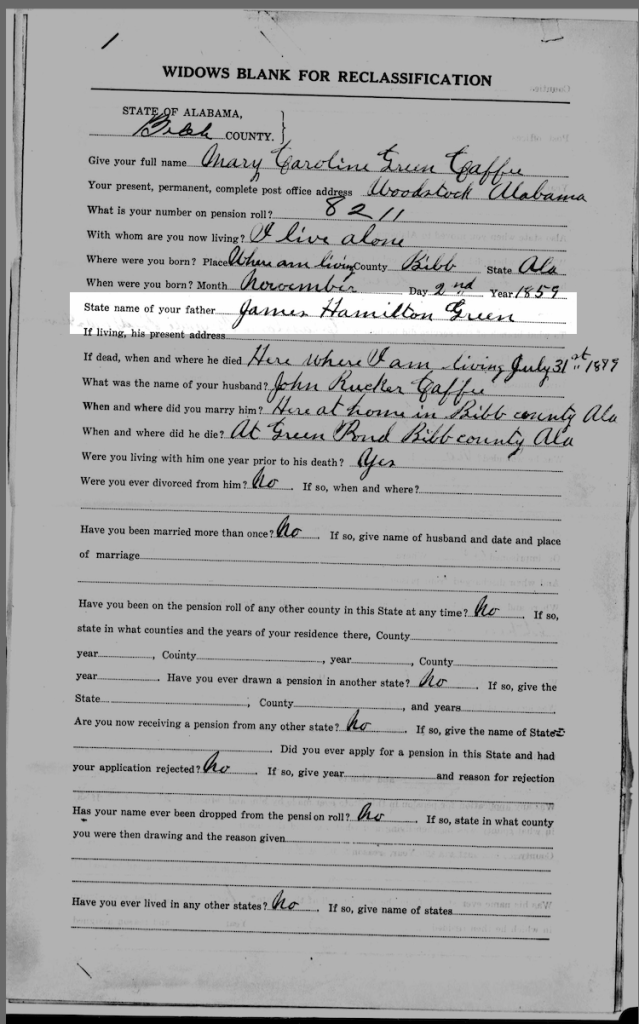 WIDOWS BLANK FOR RECLASSIFICATION
STATE OF ALABAMA,
Bibb COUNTY. }
Give your full name Mary Caroline Green Caffee
Your present, permanent, complete post office address Woodstock Alabama
What is your number on pension roll? 8211
With whom are you now living? I live alone
Where were you born? Place Where am living County Bibb State Ala
When were you born? Month November Day 2nd Year 1859
State name of your father James Hamilton Green
If living, his present address
If dead, when and where he died Here where I am living July 31st 1899
What was the name of your husband? John Rucker Caffee
When and where did you marry him? Here at home in Bibb county Ala
When and where did he die? At Green Pond Bibb county Ala
Were you living with him one year prior to his death? Yes
Were you ever divorced from him? No. If so, when and where?
Have you been married more than once? No. If so, give name of husband and date and place
of marriage
Have you been on the pension roll of any other county in this State at any time? No. If so,
state in what counties and the years of your residence there, County
year, County, year, County
year. Have you ever drawn a pension in another state? No. If so, give the
State, County, and years
Are you now receiving a pension from any other state? No. If so, give the name of State
. Did you ever apply for a pension in this State and had
your application rejected? No. If so, give year and reason for rejection
Has your name ever been dropped from the pension roll? No. If so, state in what county
you were then drawing and the reason given
Have you ever lived in any other states? No. If so, give name of states